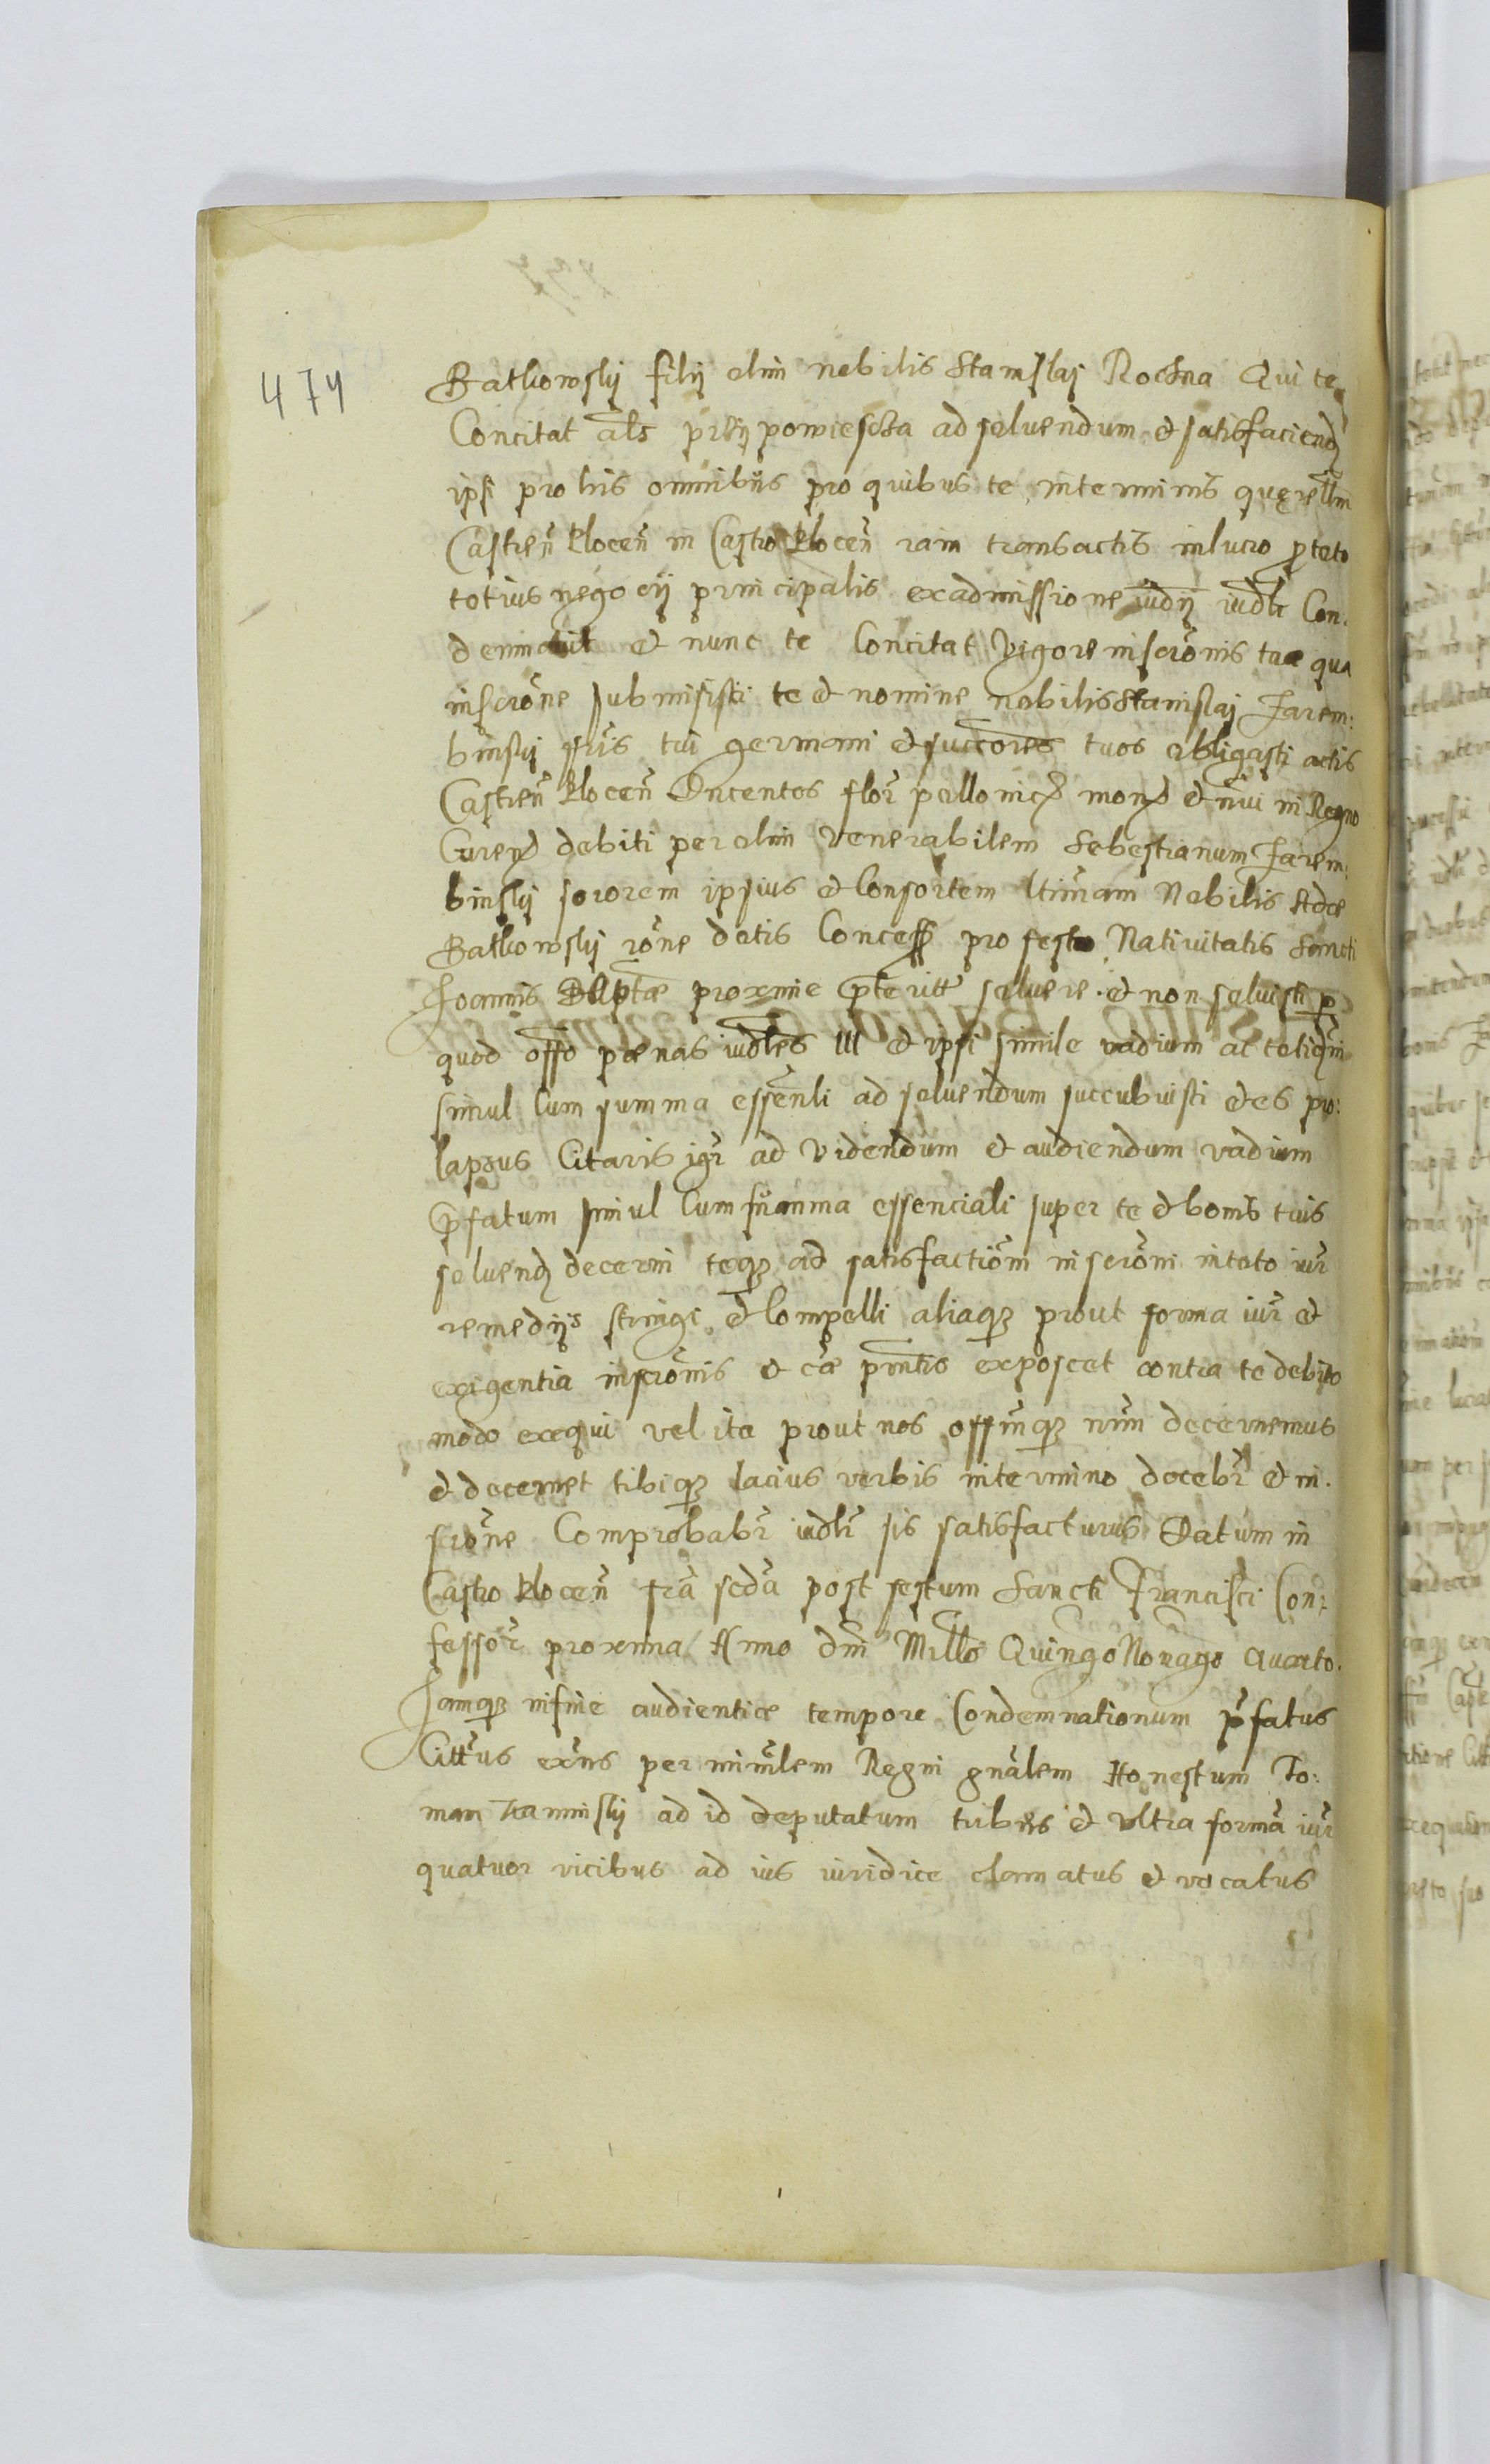 474
Bathowskij filij olim nobilis Stanislaj Rochna Qui te
Concitat als przypowiescha ad soluendum et satisfaciend
ipsi pro his omnibus pro quibus te in terminis querellm
Castren Plocen in Castro Plocen iam transactis in lucro p toto
totius negocij principalis ex admissione iudij iudlr Con.
demnauit et nunc te Concitat vigore inscronis tuæ qua
inscrone submisisti te et nomine nobilis Stanislaj Jarem:
binskij fris tui germani et succores tuos obligasti actis
Castren Plocen Ducentos flor pollonical mone et nrui in Regno
Curen debiti per olim venerabilem Sebestianum Jarem:
binskij sororem ipsius et Consortem ltimam Nobilis Adæ
Bathowskij rone dotis Concess pro festo Natiuitatis Sancti
Joannis Baptæ proxime pteritt soluere et non soluisti p
quod offo pænas iudles III et ipsi simile vadium ac
simul Cum summa essenli ad soluendum succubuisti et es pro:
lapsus Citaris igr ad videndum et audiendum vadium
pfatum simul Cum summa essenciali super te et bonis tuis
soluend decerni teqz ad satisfactiom inscroni in toto iur
remedijs stringi et Compelli aliaqz prout forma iur et
exigentia inscronis et cæ pntis exposcet contra te debito
modo exequi vel ita prout nos offmqz nrm decernemus
et decernet tibiqz lacius verbis in termino docebr et in.
scrone Comprobabr iudlr sis satisfacturus Datum in
Castro Plocen fra scda post festum Sancti Francisci Con:
fessor proxima Anno dni Millo Quingo Nonago Quarto.
Jamqz in fine audientiæ tempore Condemnationum pfatus
Cittus exns per minrlem Regni gnalem Honestum To:
man ad id deputatum tribus et vltra forma iur
quatuor vicibus ad ius iuridice clamatus et vocatus